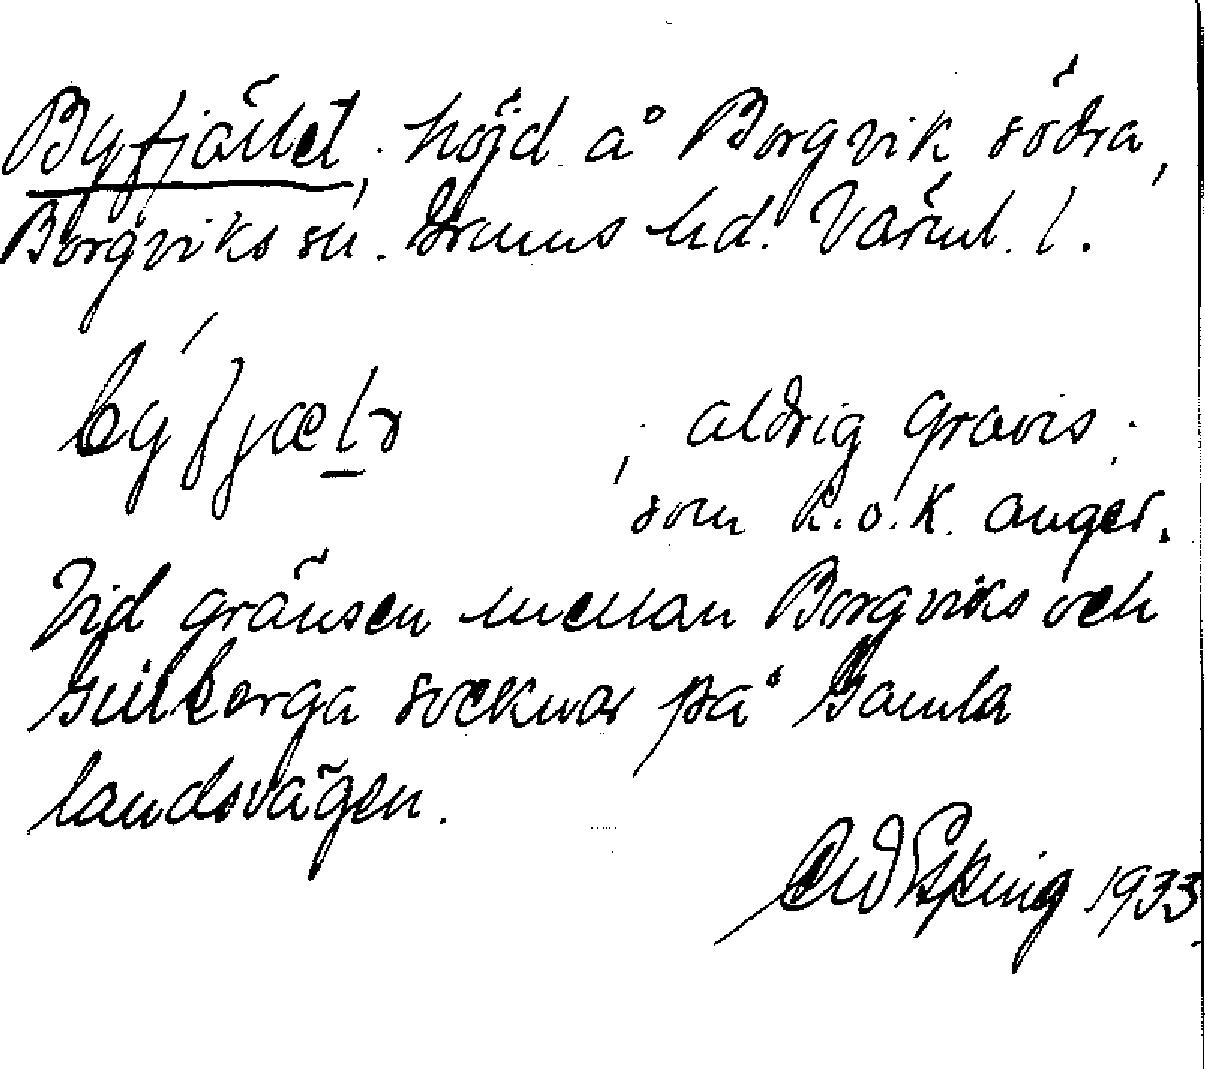 Byfjället, höjd å Borgvik södra,
Borgviks sn. Grums hd. Värml. l.
býfjæḻɔ ; aldrig gravis,
som R.o.K. anger.
Vid gränsen mellan Borgviks och
Gillberga socknar på Gamla
landsvägen.
1933